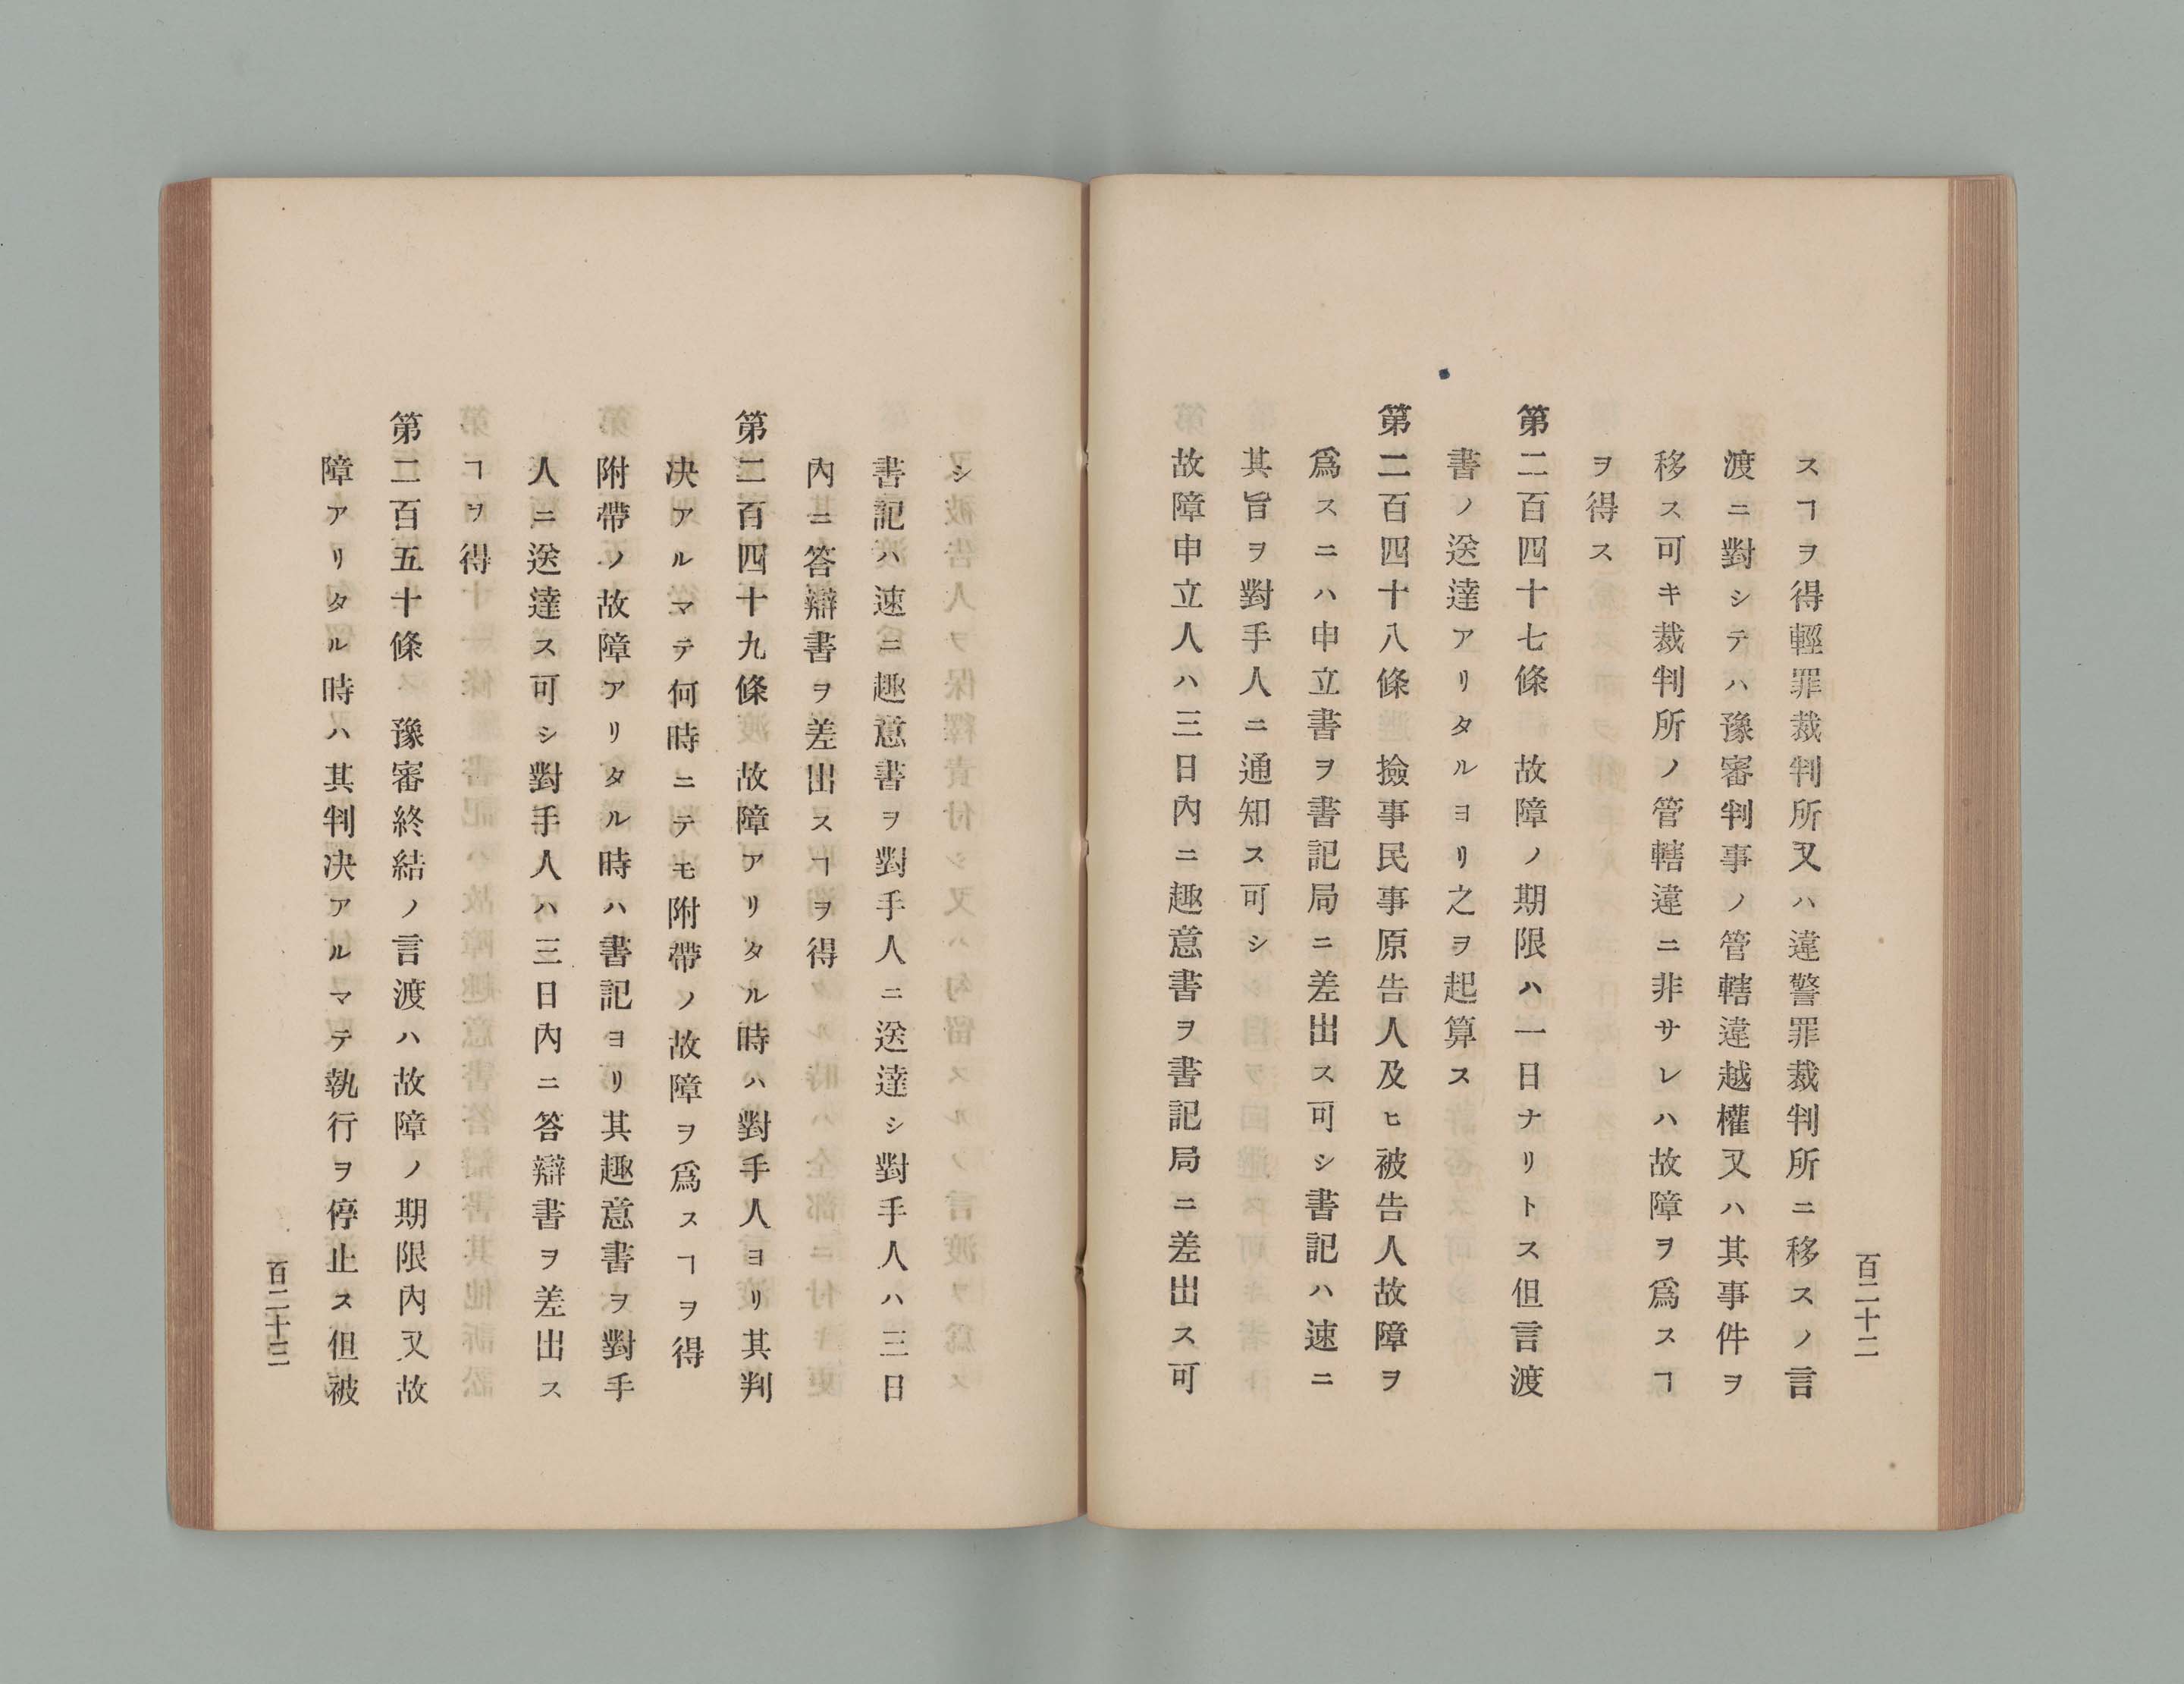 百二十二
スヿヲ得輕罪裁判所又ハ違警罪裁判所ニ移スノ言
渡ニ對シテハ豫審判事ノ管轄違越權又ハ其事件ヲ
移ス可キ裁判所ノ管轄違ニ非サレハ故障ヲ爲スヿ
ヲ得ス
第二百四十七條　故障ノ期限ハ一日ナリトス但言渡
書ノ送達アリタルヨリ之ヲ起算ス
第二百四十八條　撿事民事原告人及ヒ被告人故障ヲ
爲スニハ申立書ヲ書記局ニ差出ス可シ書記ハ速ニ
其旨ヲ對手人ニ通知ス可シ
故障申立人ハ三日內ニ趣意書ヲ書記局ニ差出ス可
シ
書記ハ速ニ趣意書ヲ對手人ニ送達シ對手人ハ三日
內ニ答辯書ヲ差出スヿヲ得
第二百四十九條　故障アリタル時ハ對手人ヨリ其判
决アルマテ何時ニテモ附帶ノ故障ヲ爲スヿヲ得
附帶ノ故障アリタル時ハ書記ヨリ其趣意書ヲ對手
人ニ送達ス可シ對手人ハ三日內ニ答辯書ヲ差出ス
ヿヲ得
第二百五十條　豫審終結ノ言渡ハ故障ノ期限內又故
障アリタル時ハ其判决アルマテ執行ヲ停止ス但被
百二十三